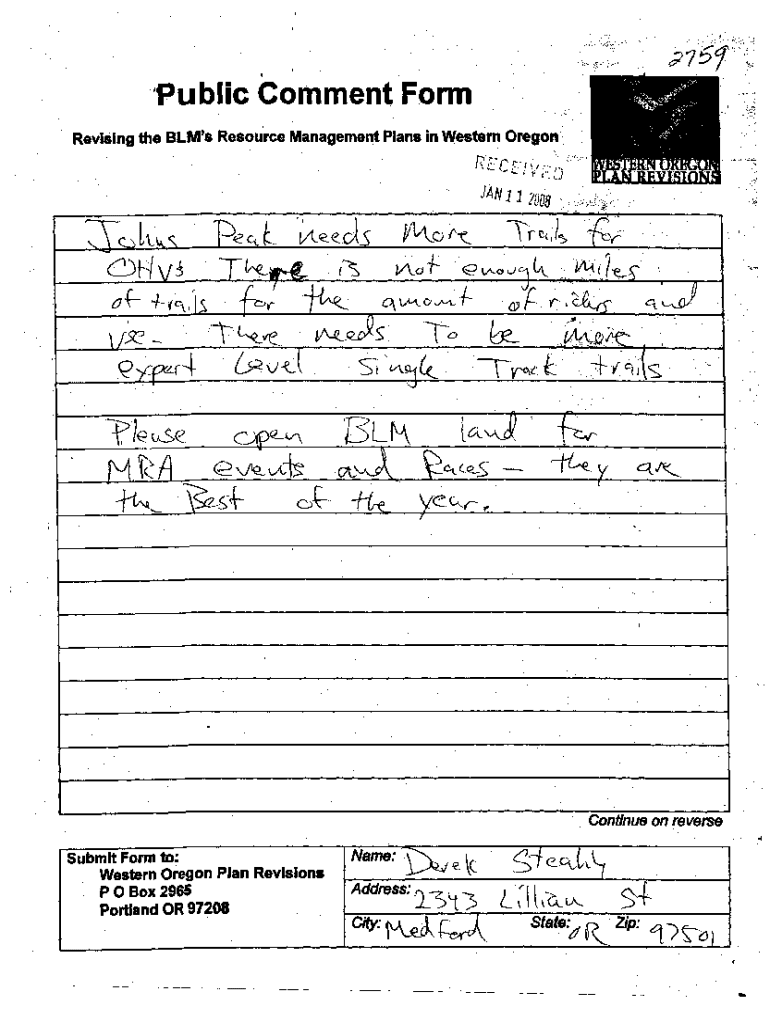 2759
Public Comment Form
Revising the BLM's Resource Management Plans in Western Oregon
WESTERN OREGON
PLAN REVISIONS
RECEIVED
JAN 11 2008
Johns Peak needs More Trails for
OHVs There is not enough miles
of trails for the amount of riders and
use - There needs To be more
expert Level Single Track trails
Please open BLM land for
MRA events and Races - they are
the Best of the year.
Continue on reverse
Submit Form to:
Western Oregon Plan Revisions
P O Box 2965
Portland OR 97208
Name: Derek
Address: 2343 Lillian St
City: Medford State: OR Zip: 97501